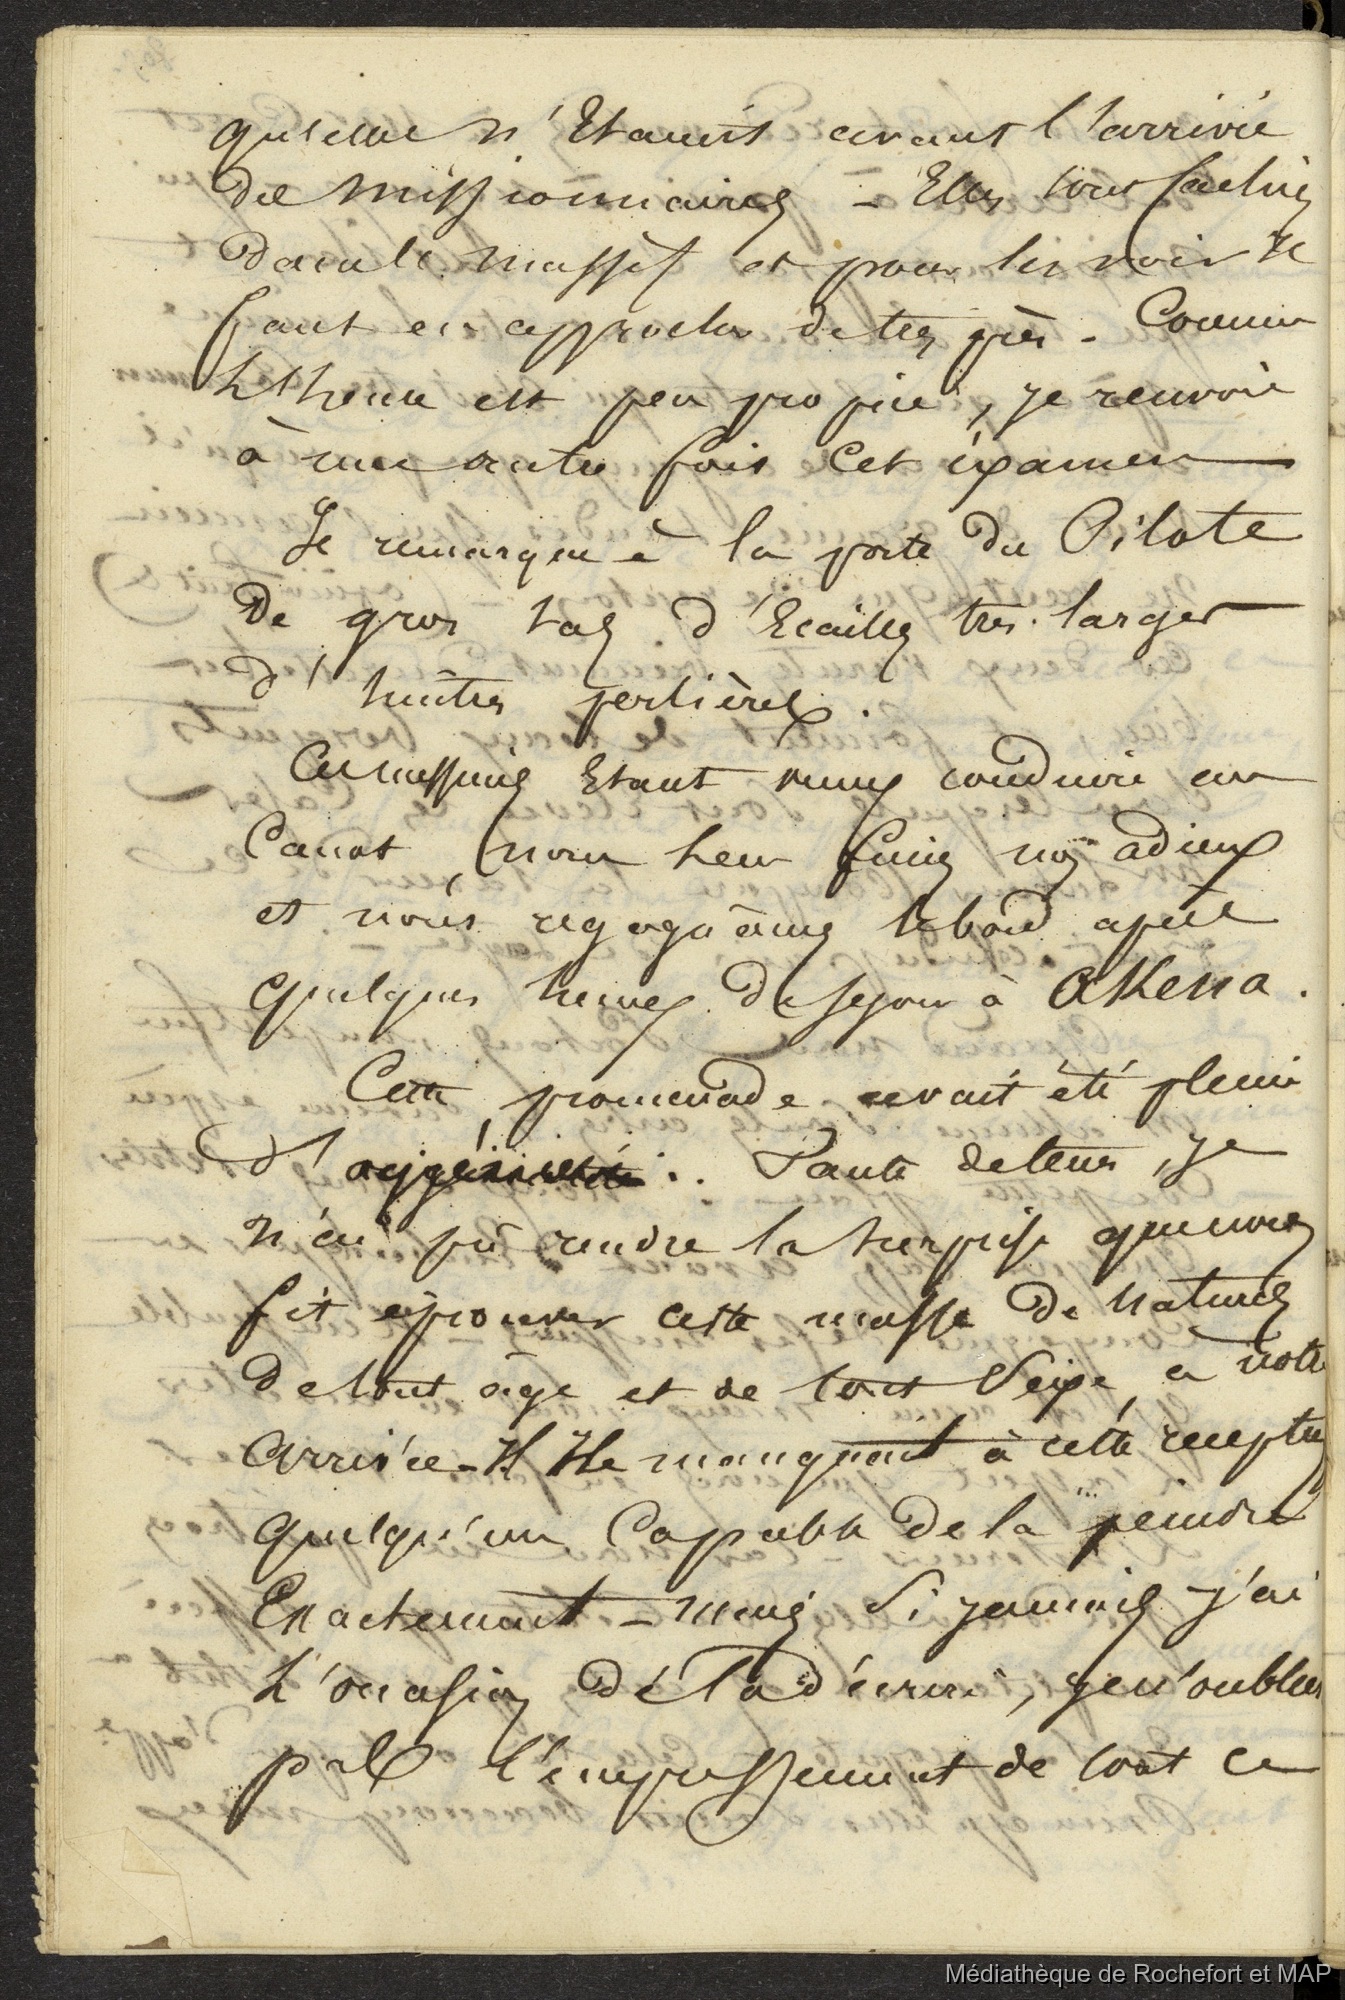 qu'elle n'Etaient avant l'arrivée
des missionnaires - Elles sont cachées
dans le massif et pour les voir il
faut en approcher de tres près - Comme
l'heure est peu propice, je renvoie
à une autre fois cet éxamen
Je remarque à la porte du Pilote
De gros tas d'Ecailles tres larges
d'huitres perlières.
Ces messieurs Etant venus conduire au
Canot, nous leur fimes nos adieux
et nous regagnâmes le bord après
quelques heures de sejour à Akena.
Cette promenade avait été pleine
d' . Faute detems, je
n'ai pû rendre la surprise que nous
fit éprouver cette masse De naturels
De tout âge et de tout Sexe, à notre
arrivée - Il manquait à cette
quelqu'un Capable de la peindre
Exactement - mais Si jamais j'ai
L'occasion de la décrire, je n'oublierai
pas l'empressement de tout ce
Médiathèque de Rochefort et MAP